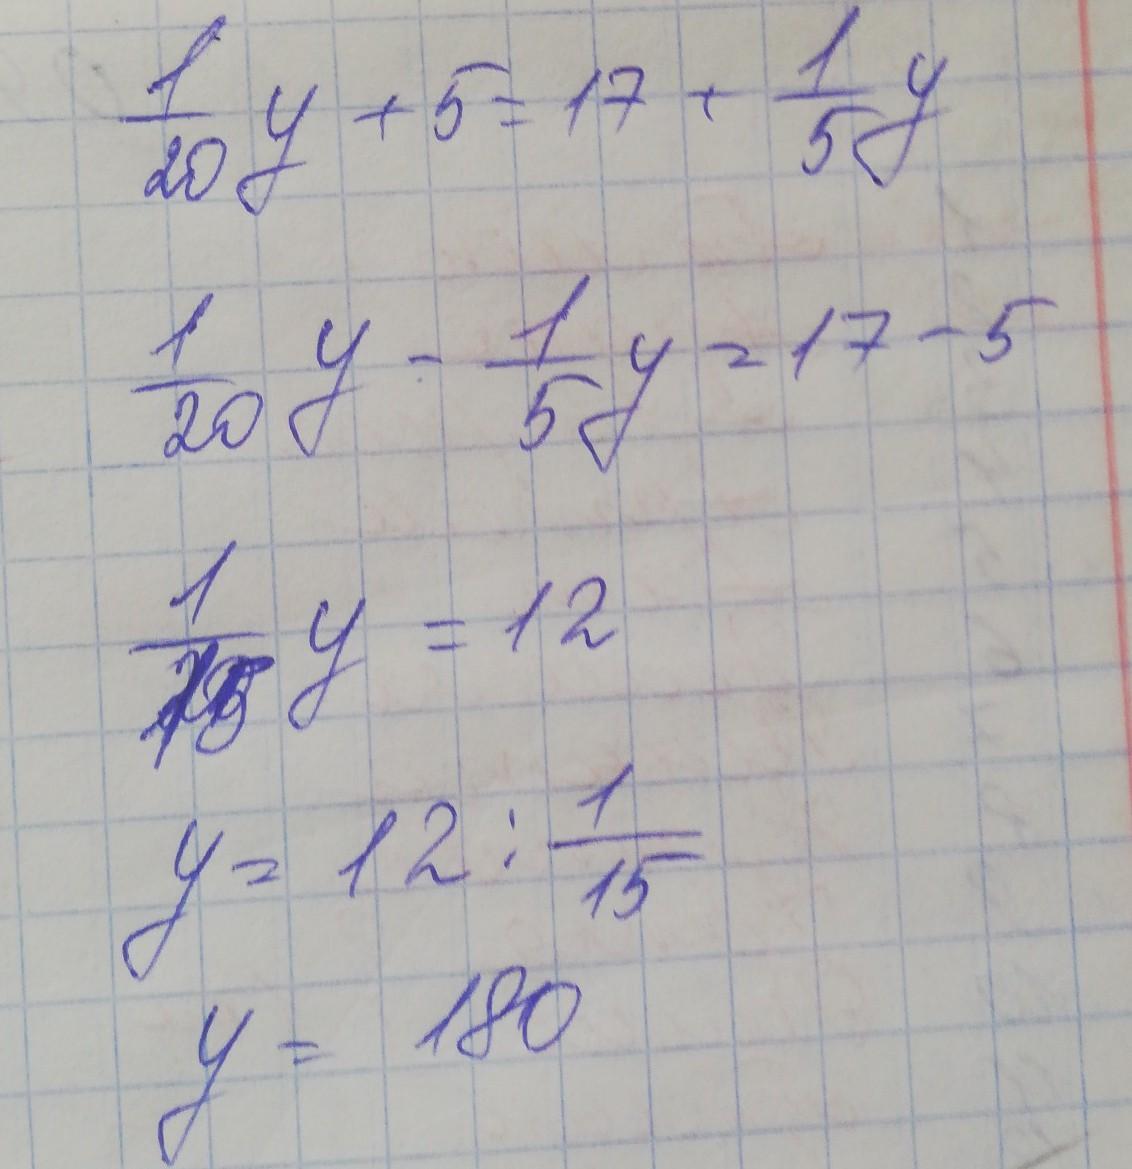 1/20 y + 5 = 17 + 1/5 y
1/20 y - 1/5 y = 17 - 5
1/15 y = 12
y = 12 : 1/15
y = 180